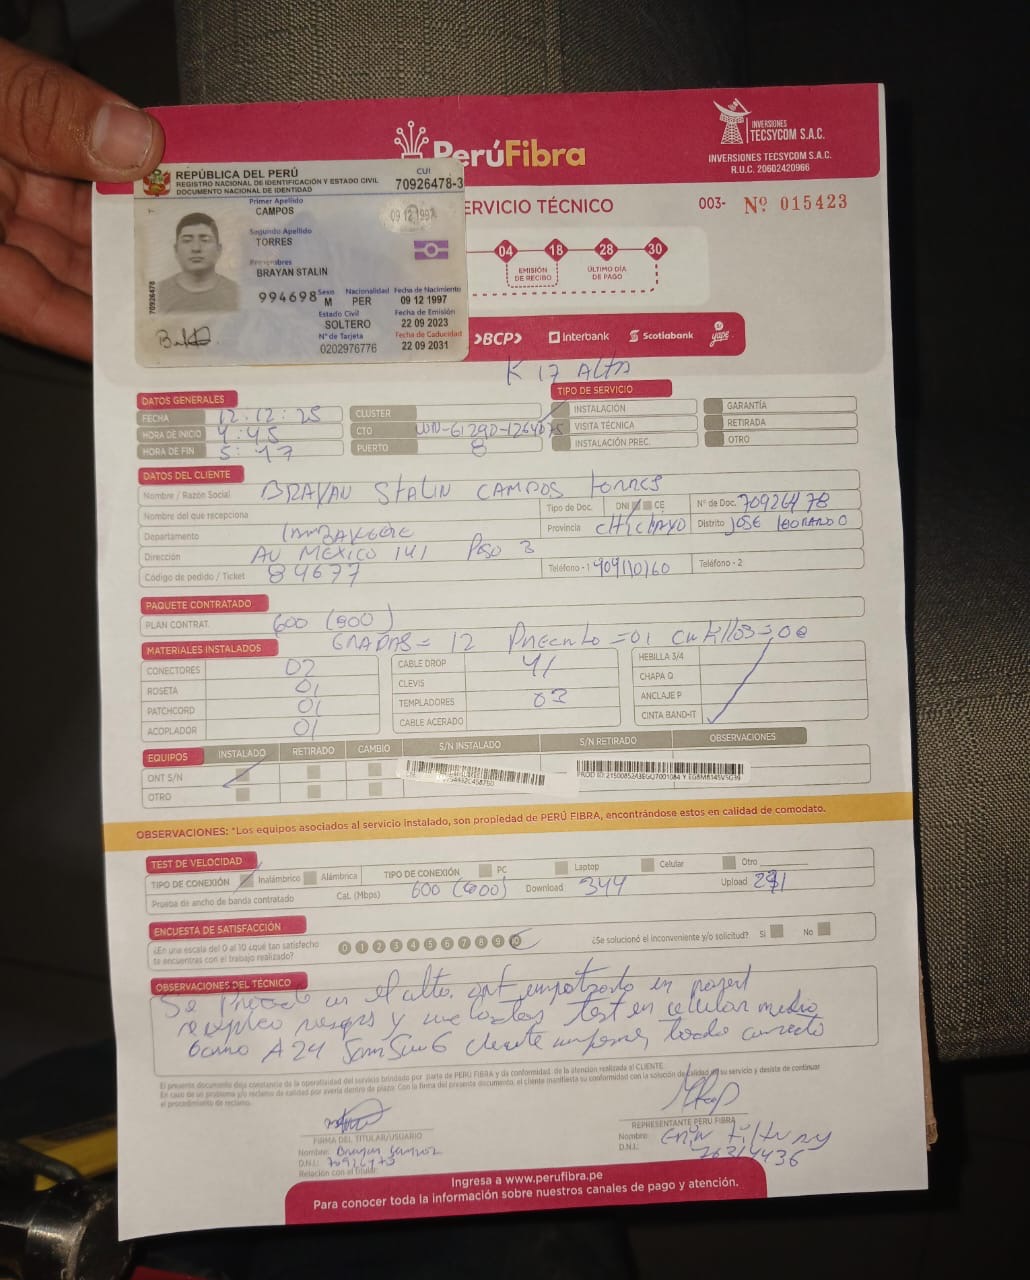 PerúFibra
INVERSIONES
TECSYCOM S.A.C.
INVERSIONES TECSYCOM S.A.C.
R.U.C. 20602420966
REPÚBLICA DEL PERÚ
REGISTRO NACIONAL DE IDENTIFICACIÓN Y ESTADO CIVIL
DOCUMENTO NACIONAL DE IDENTIDAD
CUI
70926478-3
Primer Apellido
CAMPOS
09 12 1997
Segundo Apellido
TORRES
Prenombres
BRAYAN STALIN
994698
Sexo Nacionalidad Fecha de Nacimiento
M PER 09 12 1997
Estado Civil Fecha de Emisión
SOLTERO 22 09 2023
N° de Tarjeta Fecha de Caducidad
0202976776 22 09 2031
70926478
ERVICIO TÉCNICO
003- Nº 015423
04 18 28 30
EMISIÓN DE RECIBO
ÚLTIMO DÍA DE PAGO
BCP Interbank Scotiabank yape
K 17 Alta
DATOS GENERALES
FECHA 12:12:25
HORA DE INICIO 4:45
HORA DE FIN 5:17
CLUSTER
CTO
PUERTO 8
TIPO DE SERVICIO
INSTALACIÓN GARANTÍA
VISITA TÉCNICA RETIRADA
INSTALACIÓN PREC. OTRO
DATOS DEL CLIENTE
Nombre / Razón Social BRAYAN STALIN CAMPOS TORRES
Nombre del que recepciona Tipo de Doc. DNI CE N° de Doc. 70926478
Departamento LAMBAYEQUE Provincia CHICLAYO Distrito JOSE LEONARDO
Dirección AV MEXICO 141 PISO 3
Código de pedido / Ticket 84677 Teléfono - 1 Teléfono - 2
PAQUETE CONTRATADO
PLAN CONTRAT. 600 (800)
GRAPAS = 12 Precinto = 01
MATERIALES INSTALADOS
CONECTORES 02
ROSETA 01
PATCHCORD 01
ACOPLADOR 01
CABLE DROP 41
CLEVIS
TEMPLADORES 03
CABLE ACERADO
HEBILLA 3/4
CHAPA Q
ANCLAJE P
CINTA BAND-IT
EQUIPOS INSTALADO RETIRADO CAMBIO S/N INSTALADO S/N RETIRADO OBSERVACIONES
ONT S/N
OTRO
OBSERVACIONES: *Los equipos asociados al servicio instalado, son propiedad de PERÚ FIBRA, encontrándose estos en calidad de comodato.
TEST DE VELOCIDAD
TIPO DE CONEXIÓN Inalámbrico Alámbrica TIPO DE CONEXIÓN PC Laptop Celular Otro
Prueba de ancho de banda contratado Cat. (Mbps) 600 (800) Download 344 Upload
ENCUESTA DE SATISFACCIÓN
¿En una escala del 0 al 10 ¿qué tan satisfecho te encuentras con el trabajo realizado? 0 1 2 3 4 5 6 7 8 9 10 ¿Se solucionó el inconveniente y/o solicitud? Si No
OBSERVACIONES DEL TÉCNICO
Se en el alto. ont en pared
y test en celular medio
A24 SamSunG cliente todo correcto
El presente documento deja constancia de la operatividad del servicio brindado por parte de PERÚ FIBRA y da conformidad de la atención realizada al CLIENTE.
En caso de un problema y/o reclamo de calidad por avería dentro de plazo: Con la firma del presente documento, el cliente manifiesta su conformidad con la solución de calidad de su servicio y desiste de continuar
el procedimiento de reclamo.
FIRMA DEL TITULAR/USUARIO
Nombre: Brayan
D.N.I.: 70926478
Relación con el titular:
REPRESENTANTE PERÚ FIBRA
Nombre:
D.N.I.: 76314436
Ingresa a www.perufibra.pe
Para conocer toda la información sobre nuestros canales de pago y atención.